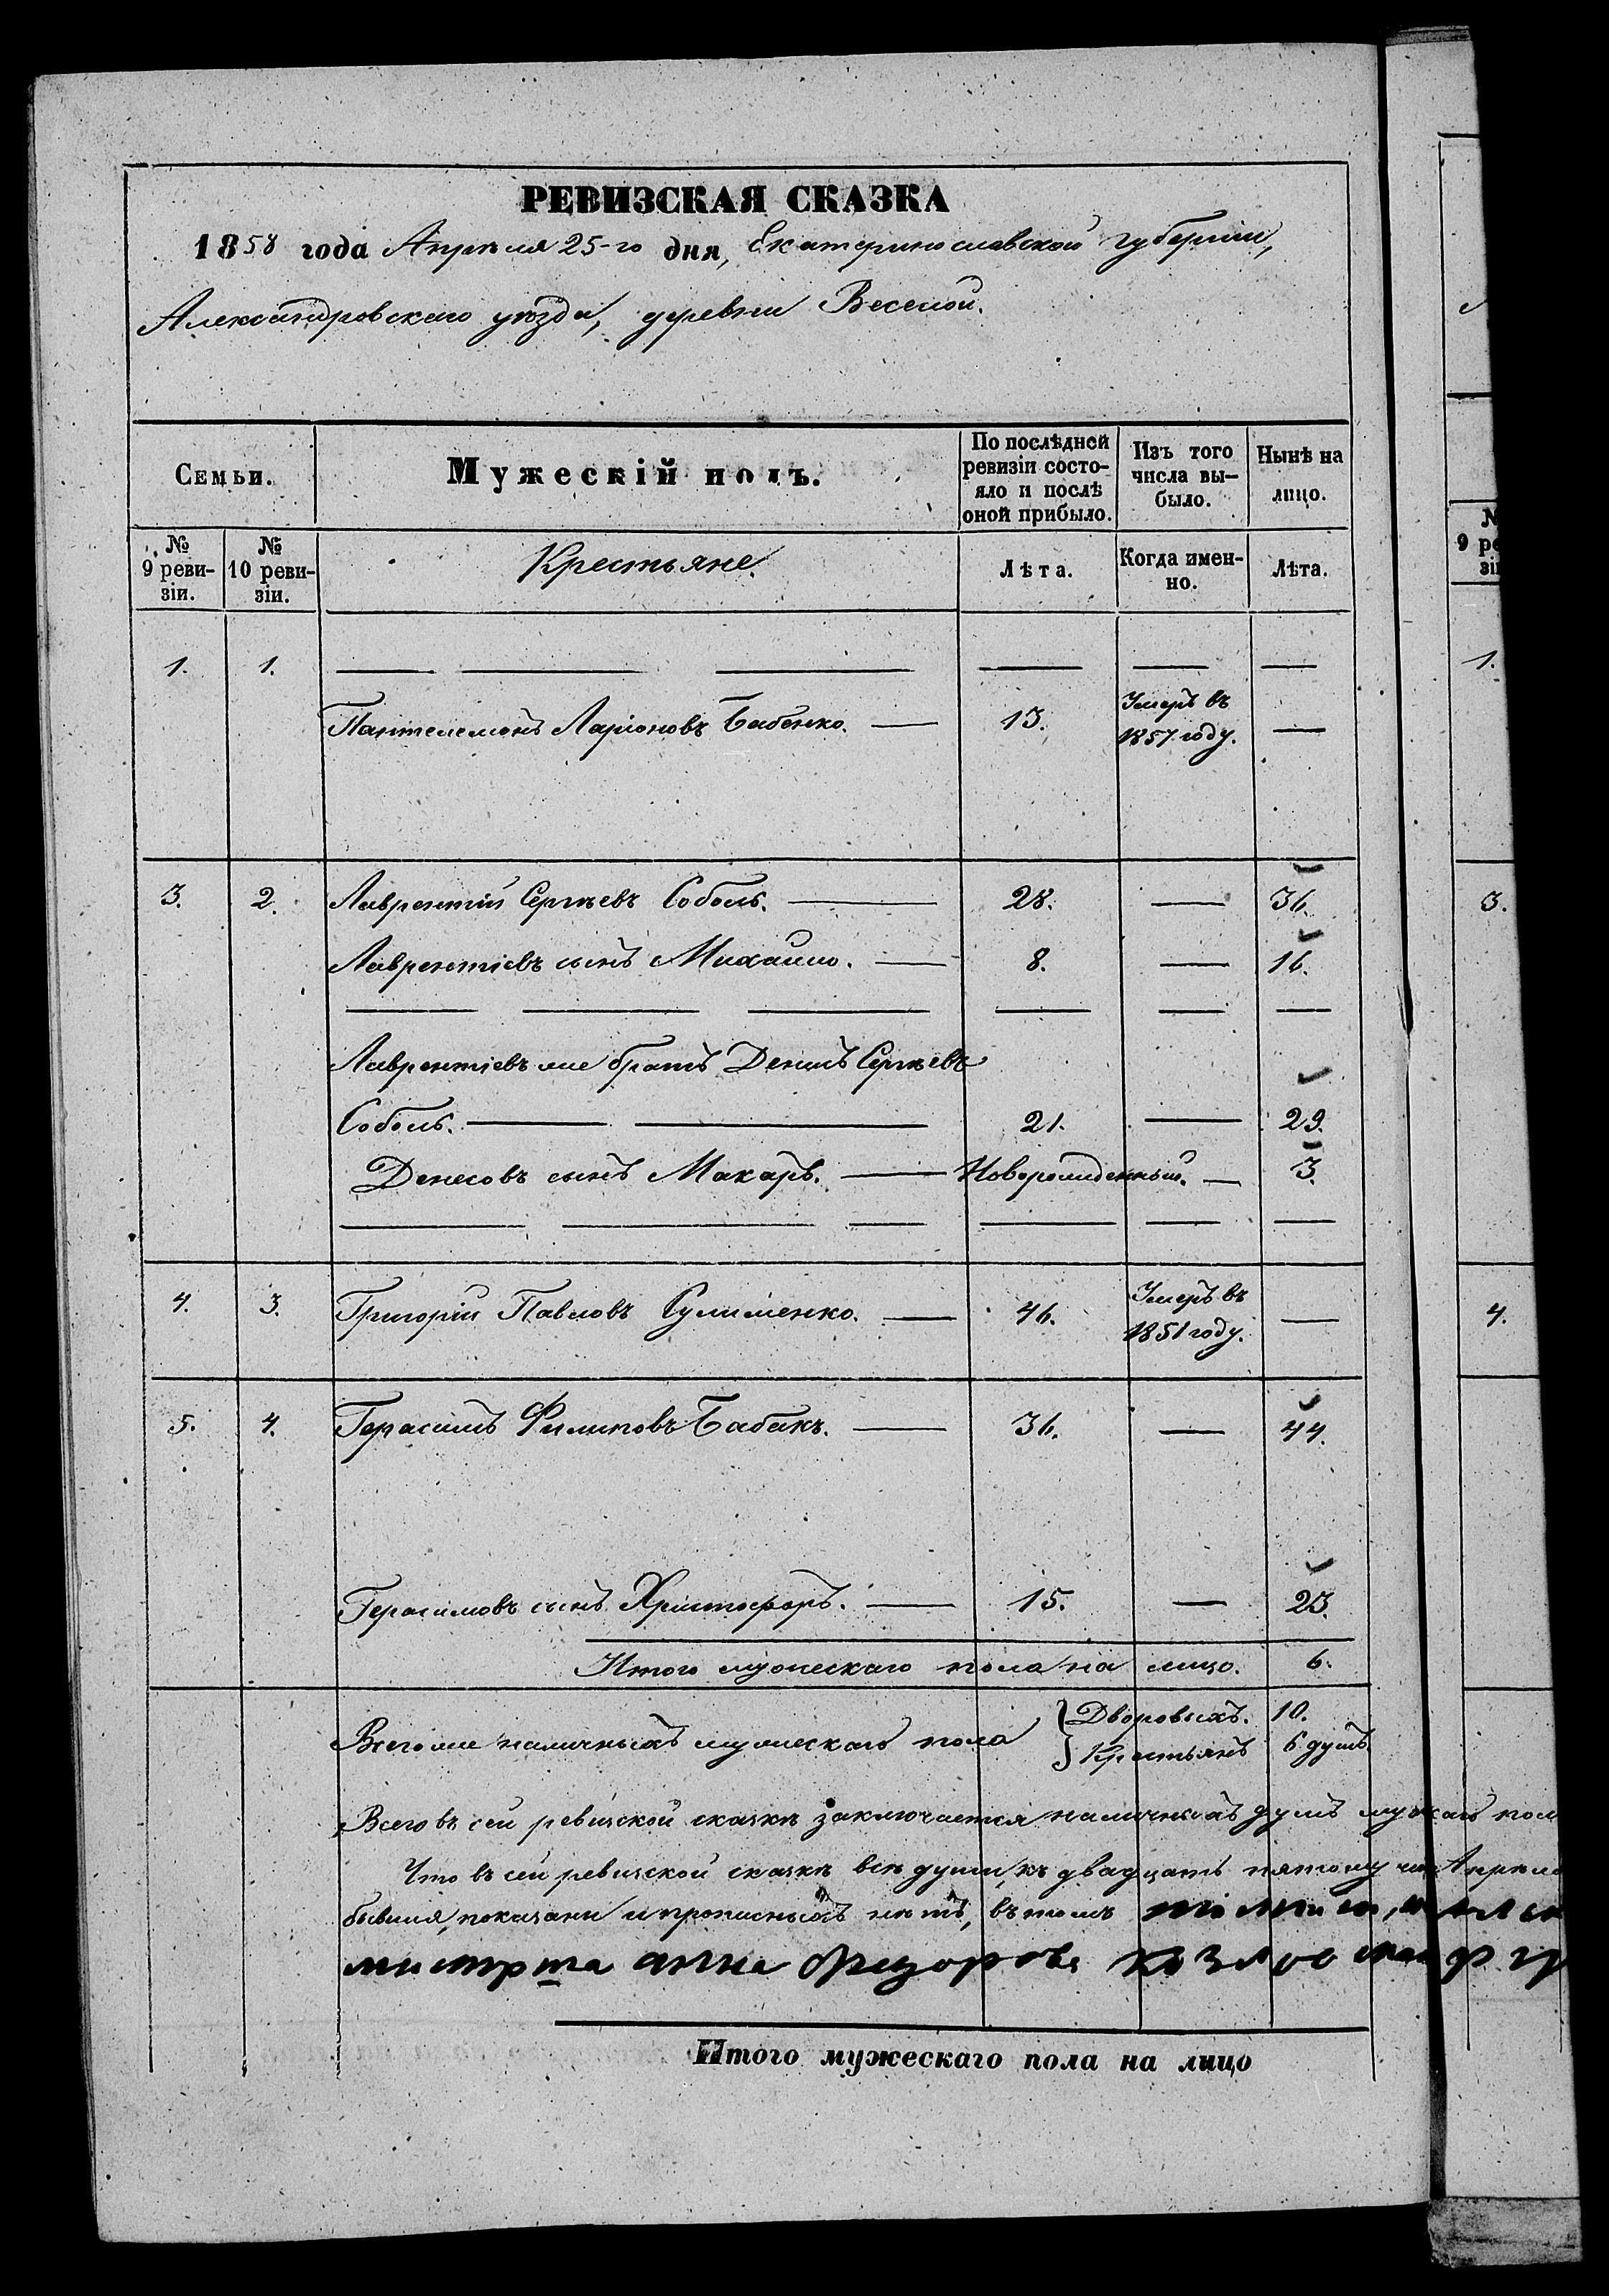 РЕВИЗСКАЯ СКАЗКА
1858 года Апрѣля 25-го дня, Екатеринославской губерніи,
Александровскаго уѣзда, деревни Веселой.
Семьи.
Мужескій полъ.
По послѣдней ревизіи состо-
яло и послѣ оной прибыло.
Изъ того числа вы-
было.
Нынѣ на лицо.
№ 9 реви-
зіи.
№ 10 реви-
зіи.
Крестьяне.
Лѣта.
Когда имен-
но.
Лѣта.
1. 1.
Пантелемонъ Ларіоновъ Бабенко. 13. Умеръ въ
1857 году.
3. 2. Лаврентій Сергѣевъ Соболь. 28. 36.
Лаврентіевъ сынъ Михаило. 8. 16.
Лаврентіевъ же братъ Денисъ Сергѣевъ
Соболь. 21. 29.
Денисовъ сынъ Макаръ. Новорожденный. 3.
4. 3. Григорій Павловъ Сулименко. 46. Умеръ въ
1851 году.
5. 4. Герасимъ Филиповъ Бабакъ. 36. 44.
Герасимовъ сынъ Христофоръ. 15. 23.
Итого мужескаго пола на лицо. 6.
Всего же наличныхъ мужескаго пола
Дворовыхъ. 10.
Крестьянъ 6 душъ.
Всего въ сей ревизской сказкѣ заключается наличныхъ душъ мужскаго пол
Что въ сей ревизской сказкѣ всѣ души, къ двадцать пятому Апрѣля
бывшія, показаны и прописныхъ нѣтъ, въ томъ
анна
Итого мужескаго пола на лицо
№
9 ре
зі
1.
3.
4.